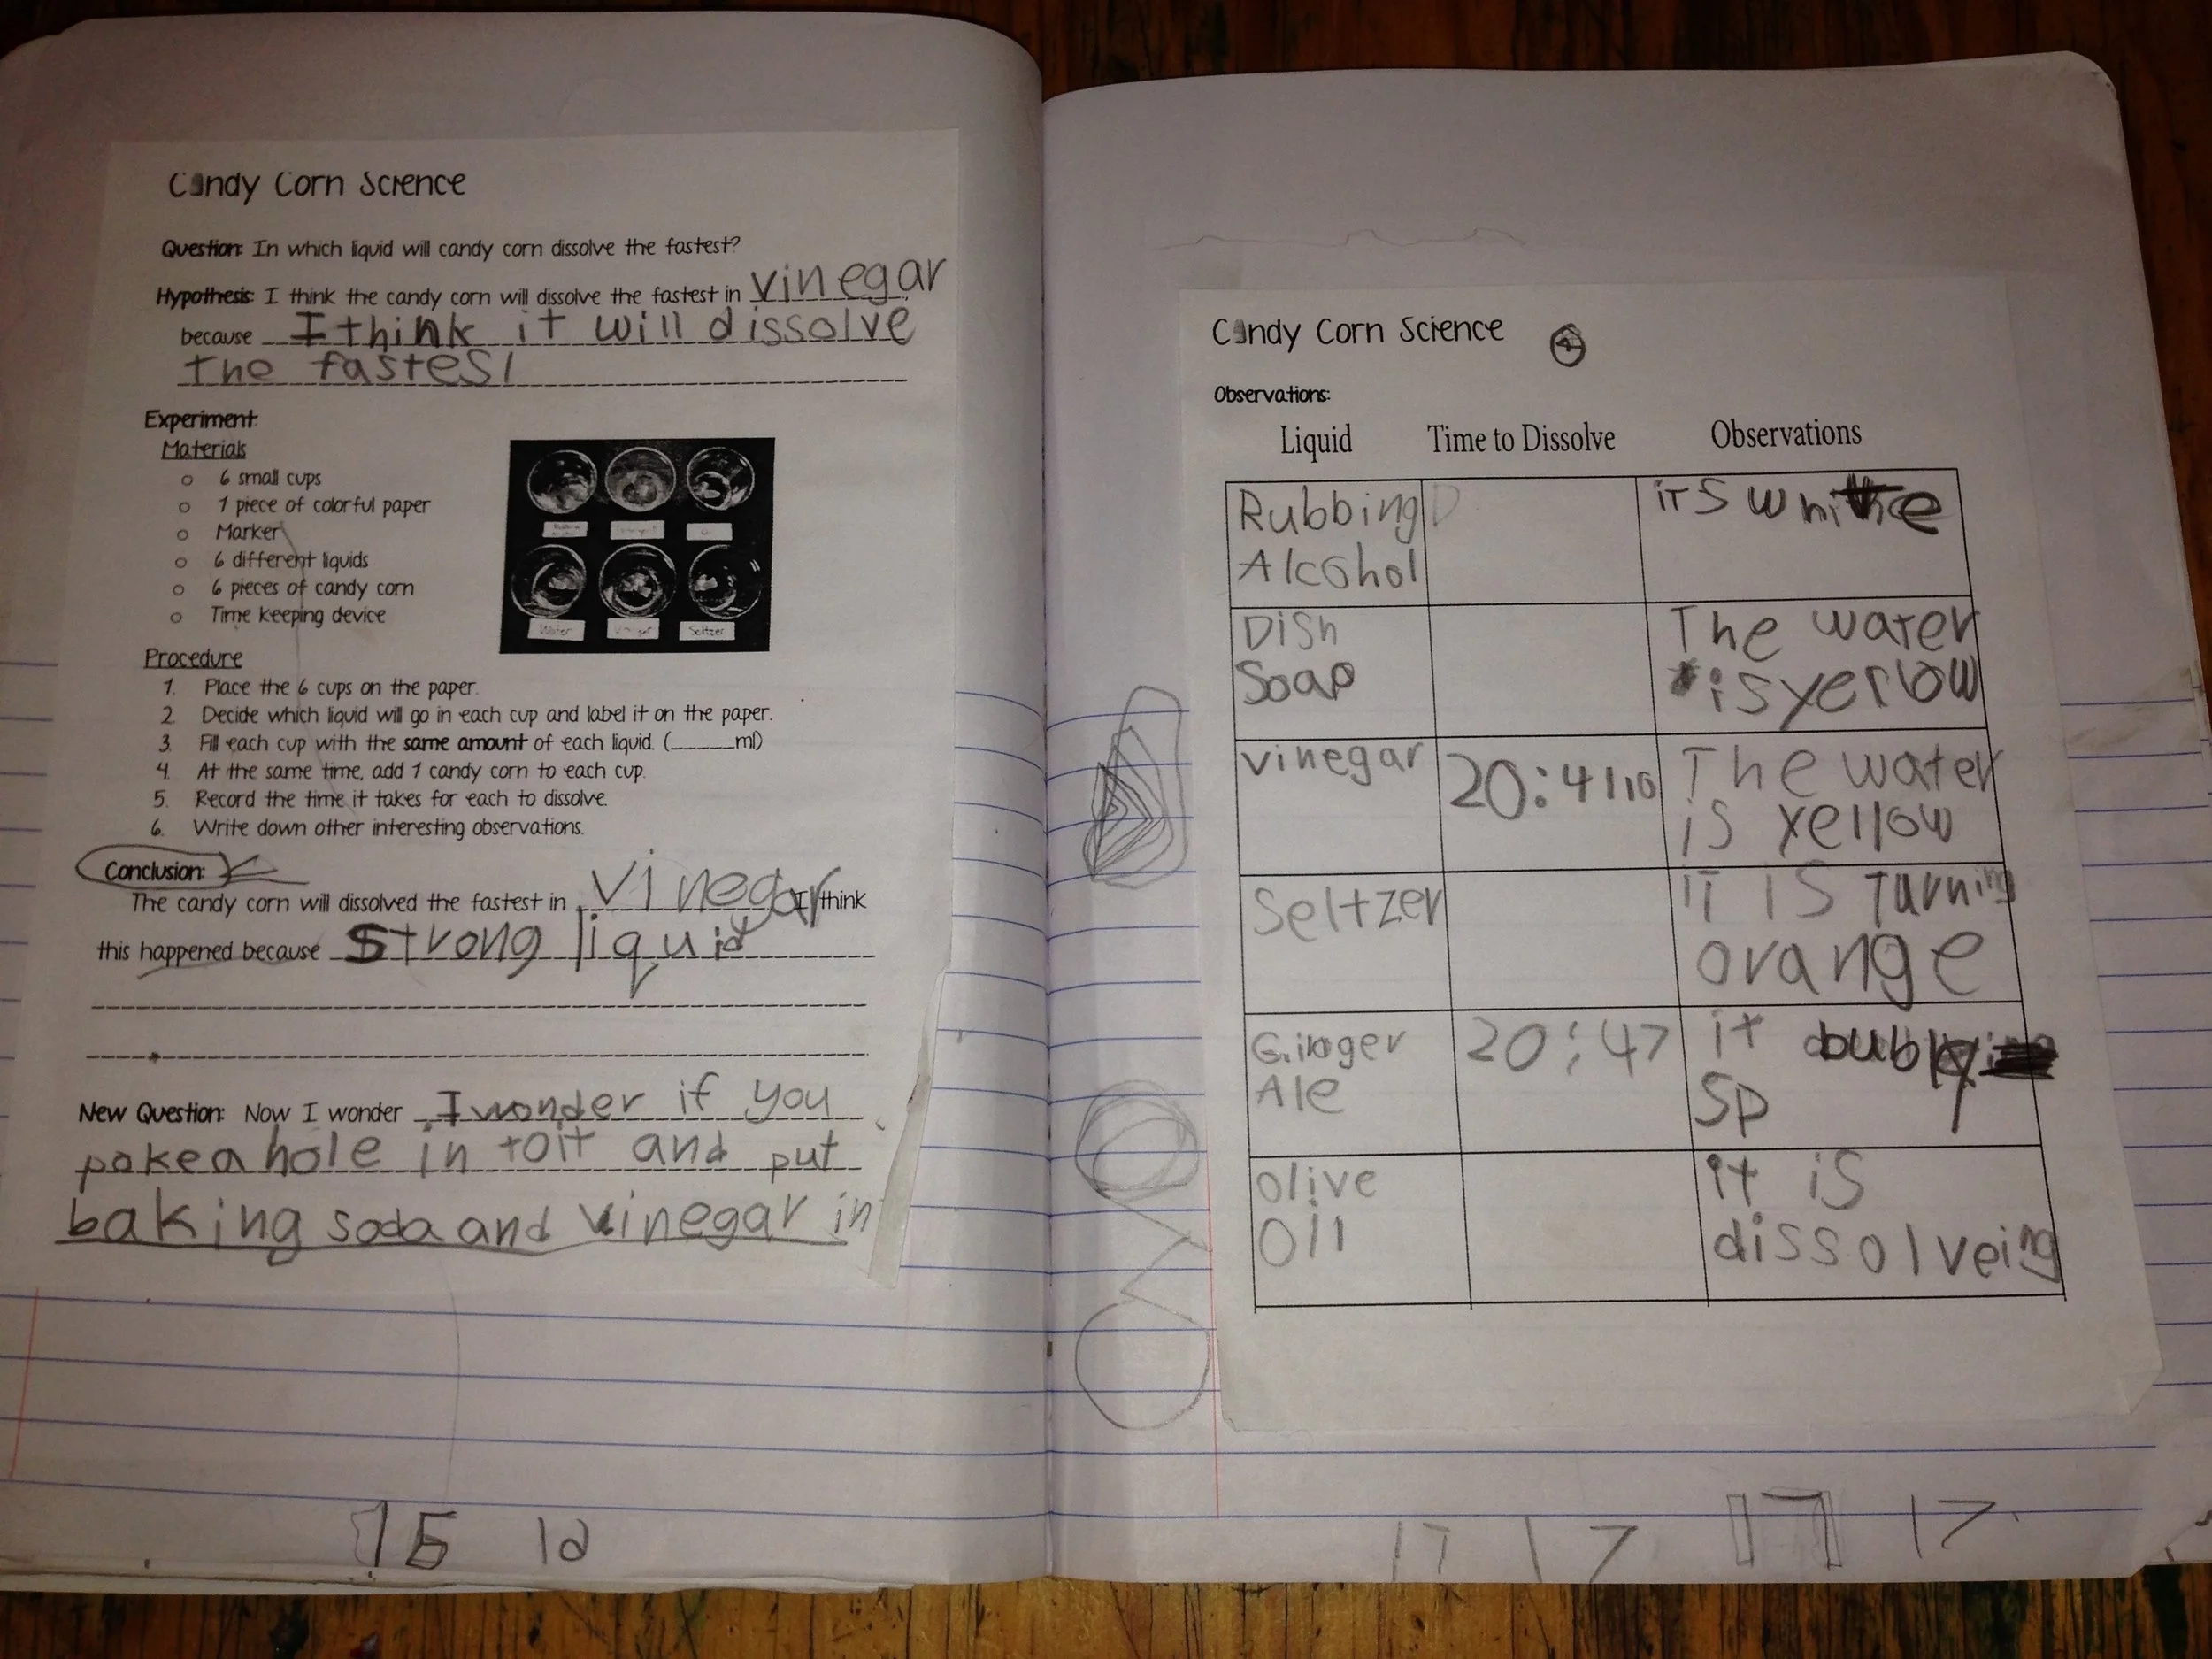 Candy Corn Science
Question: In which liquid will candy corn dissolve the fastest?
Hypothesis: I think the candy corn will dissolve the fastest in vinegar
because I think it will dissolve
the fastest
Experiment:
Materials
o 6 small cups
o 1 piece of colorful paper
o Marker
o 6 different liquids
o 6 pieces of candy corn
o Time keeping device
Water Vinegar Seltzer
Procedure
1. Place the 6 cups on the paper.
2. Decide which liquid will go in each cup and label it on the paper.
3. Fill each cup with the same amount of each liquid. (_____ml)
4. At the same time, add 1 candy corn to each cup.
5. Record the time it takes for each to dissolve.
6. Write down other interesting observations.
Conclusion:
The candy corn will dissolved the fastest in vinegar I think
this happened because strong liquid
New Question: Now I wonder I wonder if you
poke a hole in toit and put
baking soda and vinegar in
16
Candy Corn Science
Observations:
Liquid Time to Dissolve Observations
Rubbing its white
Alcohol
Dish The water
Soap is yerlow
vinegar 20:41 The water
is yellow
Seltzer it is turning
orange
Ginger 20:47 it bubbly
Ale Sp
Olive it is
Oil dissolveing
17 17 17 17